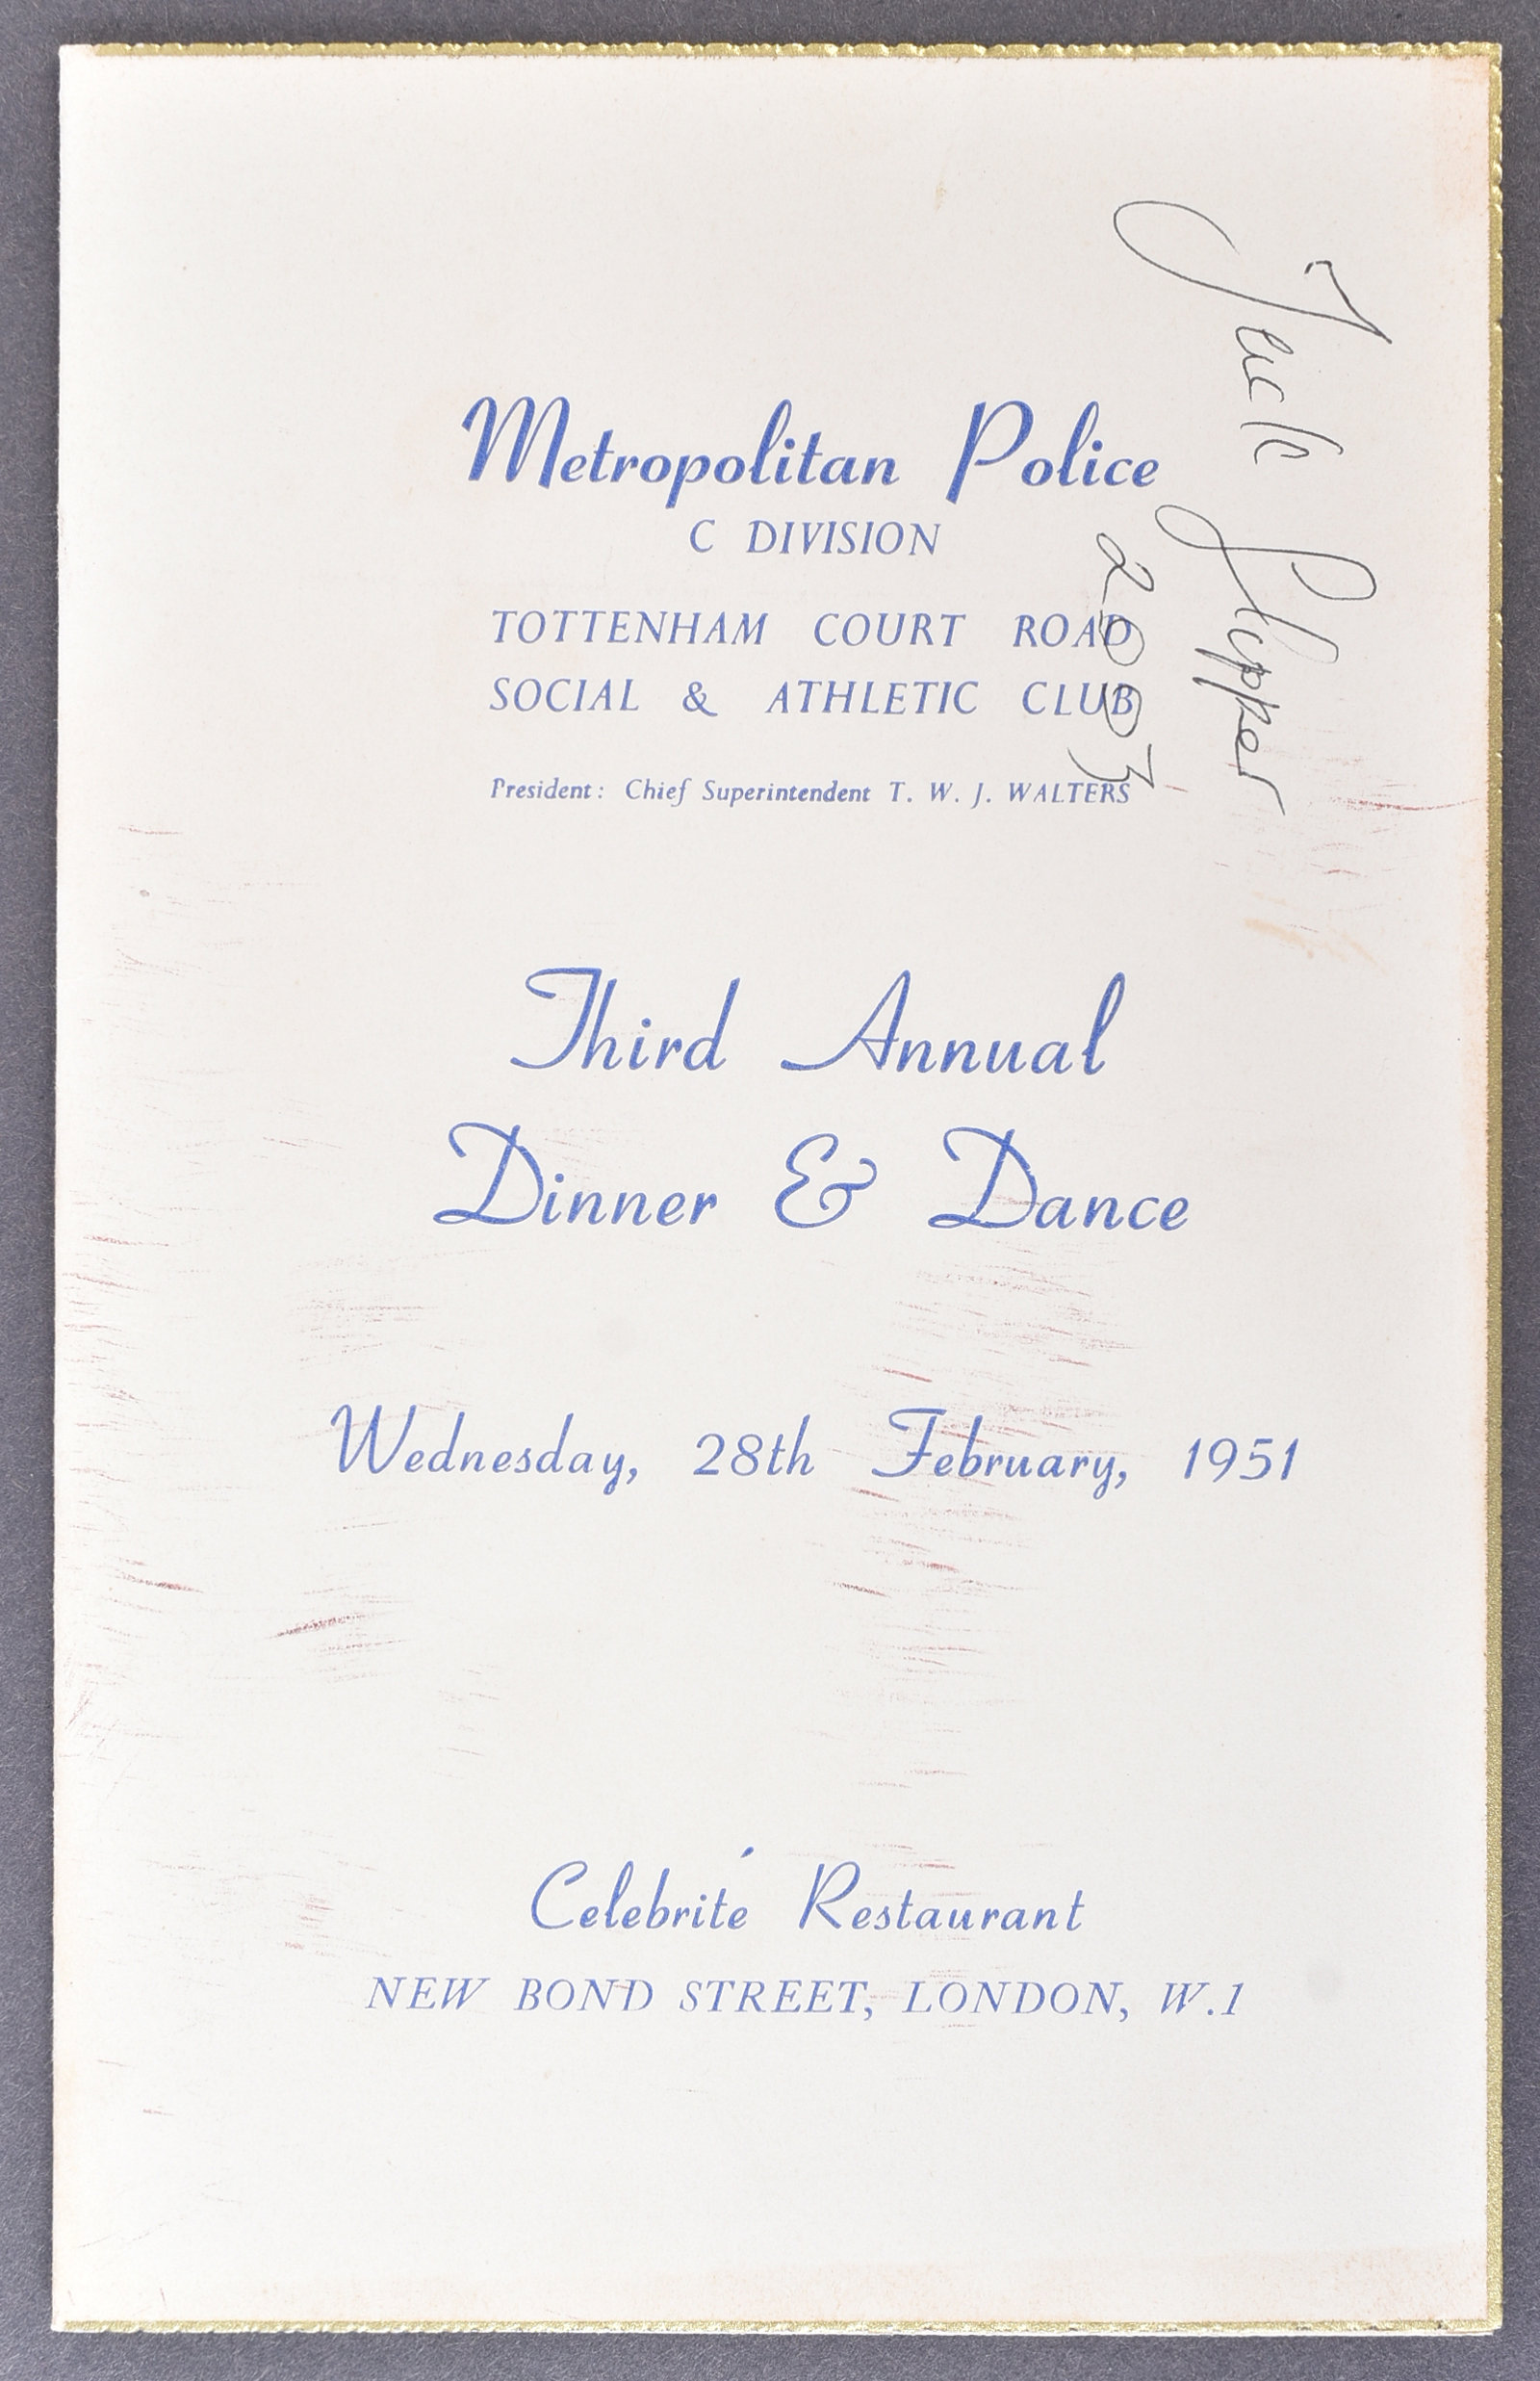 Metropolitan Police
C DIVISION
TOTTENHAM COURT ROAD
SOCIAL & ATHLETIC CLUB
President: Chief Superintendent T. W. J. WALTERS
Third Annual
Dinner & Dance
Wednesday, 28th February, 1951
Celebrité Restaurant
NEW BOND STREET, LONDON, W.1
Jack Slipper
2003